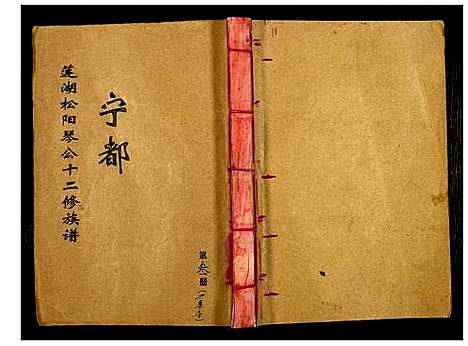 宁都
莲湖松阳琴公十二修族谱
第叁册